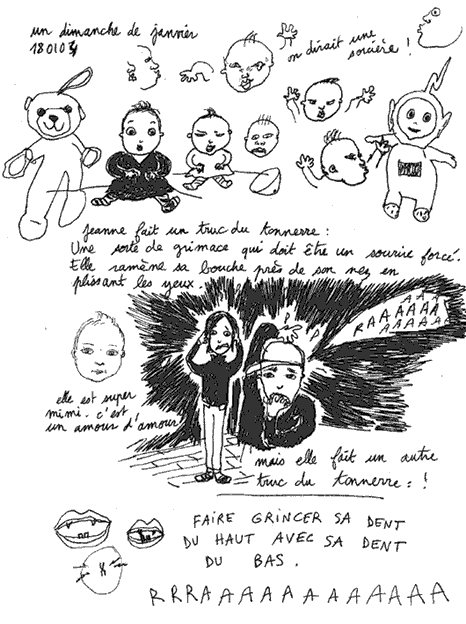 un dimanche de janvier
180104
on dirait une
sorcière !
Jeanne fait un truc du tonnerre :
Une sorte de grimace qui doit être un sourire forcé.
Elle ramène sa bouche près de son nez en
plissant les yeux.
RAAAAAAA
AAAAA
elle est super
mimi. c'est
un amour d'amour
mais elle fait un autre
truc du tonnerre : !
FAIRE GRINCER SA DENT
DU HAUT AVEC SA DENT
DU BAS.
RRRAAAAAAAAAAAA